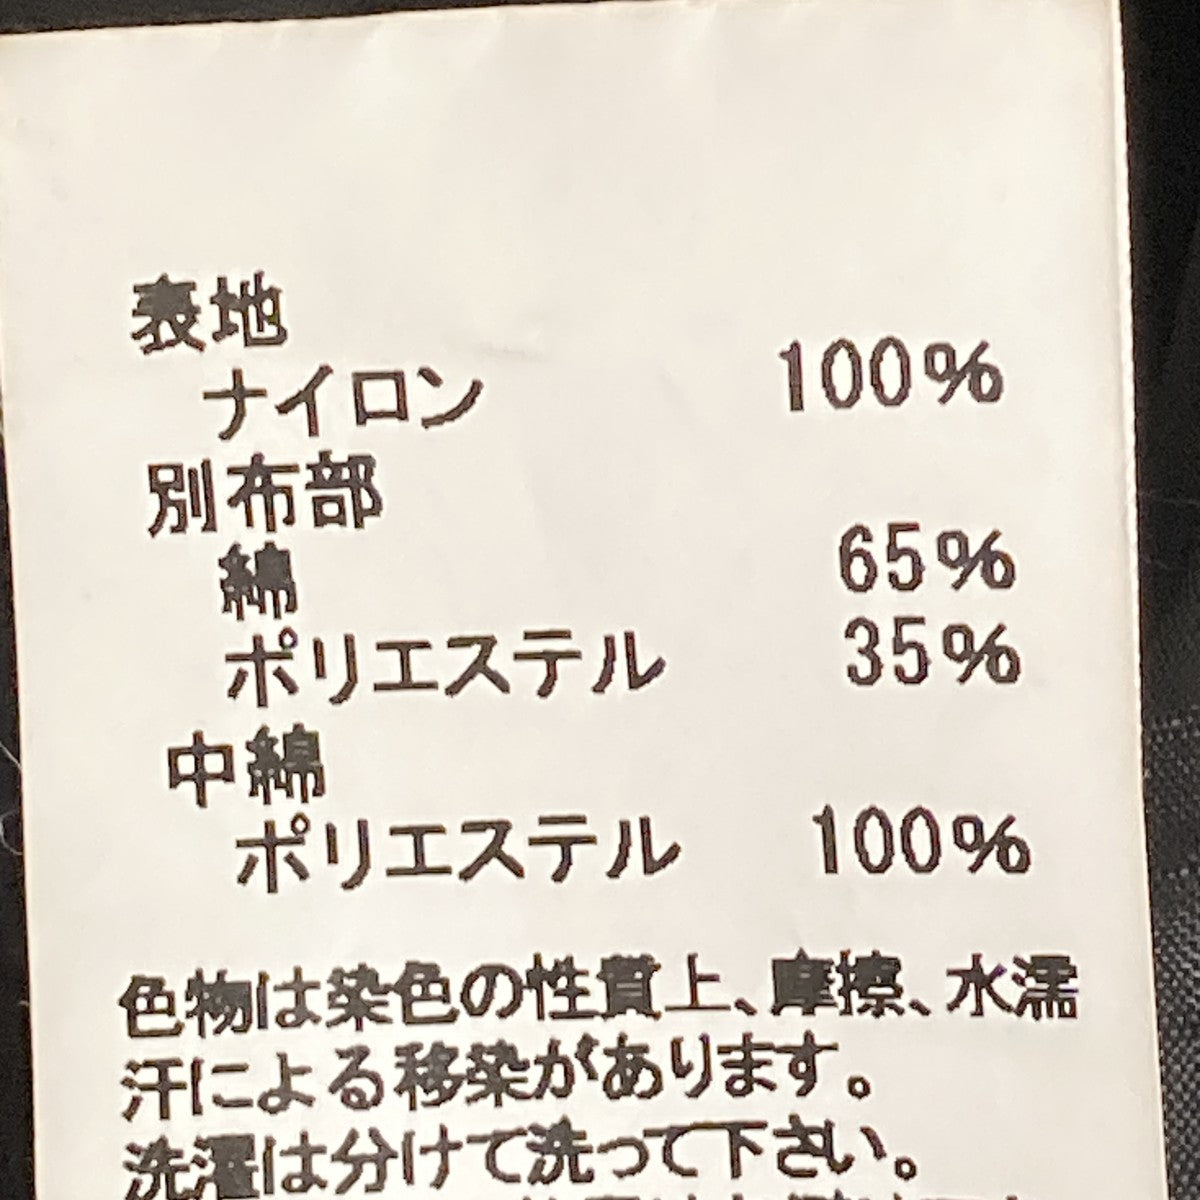 表地
ナイロン 100%
別布部
綿 65%
ポリエステル 35%
中綿
ポリエステル 100%
色物は染色の性質上、摩擦、水濡
汗による移染があります。
洗濯は分けて洗って下さい。